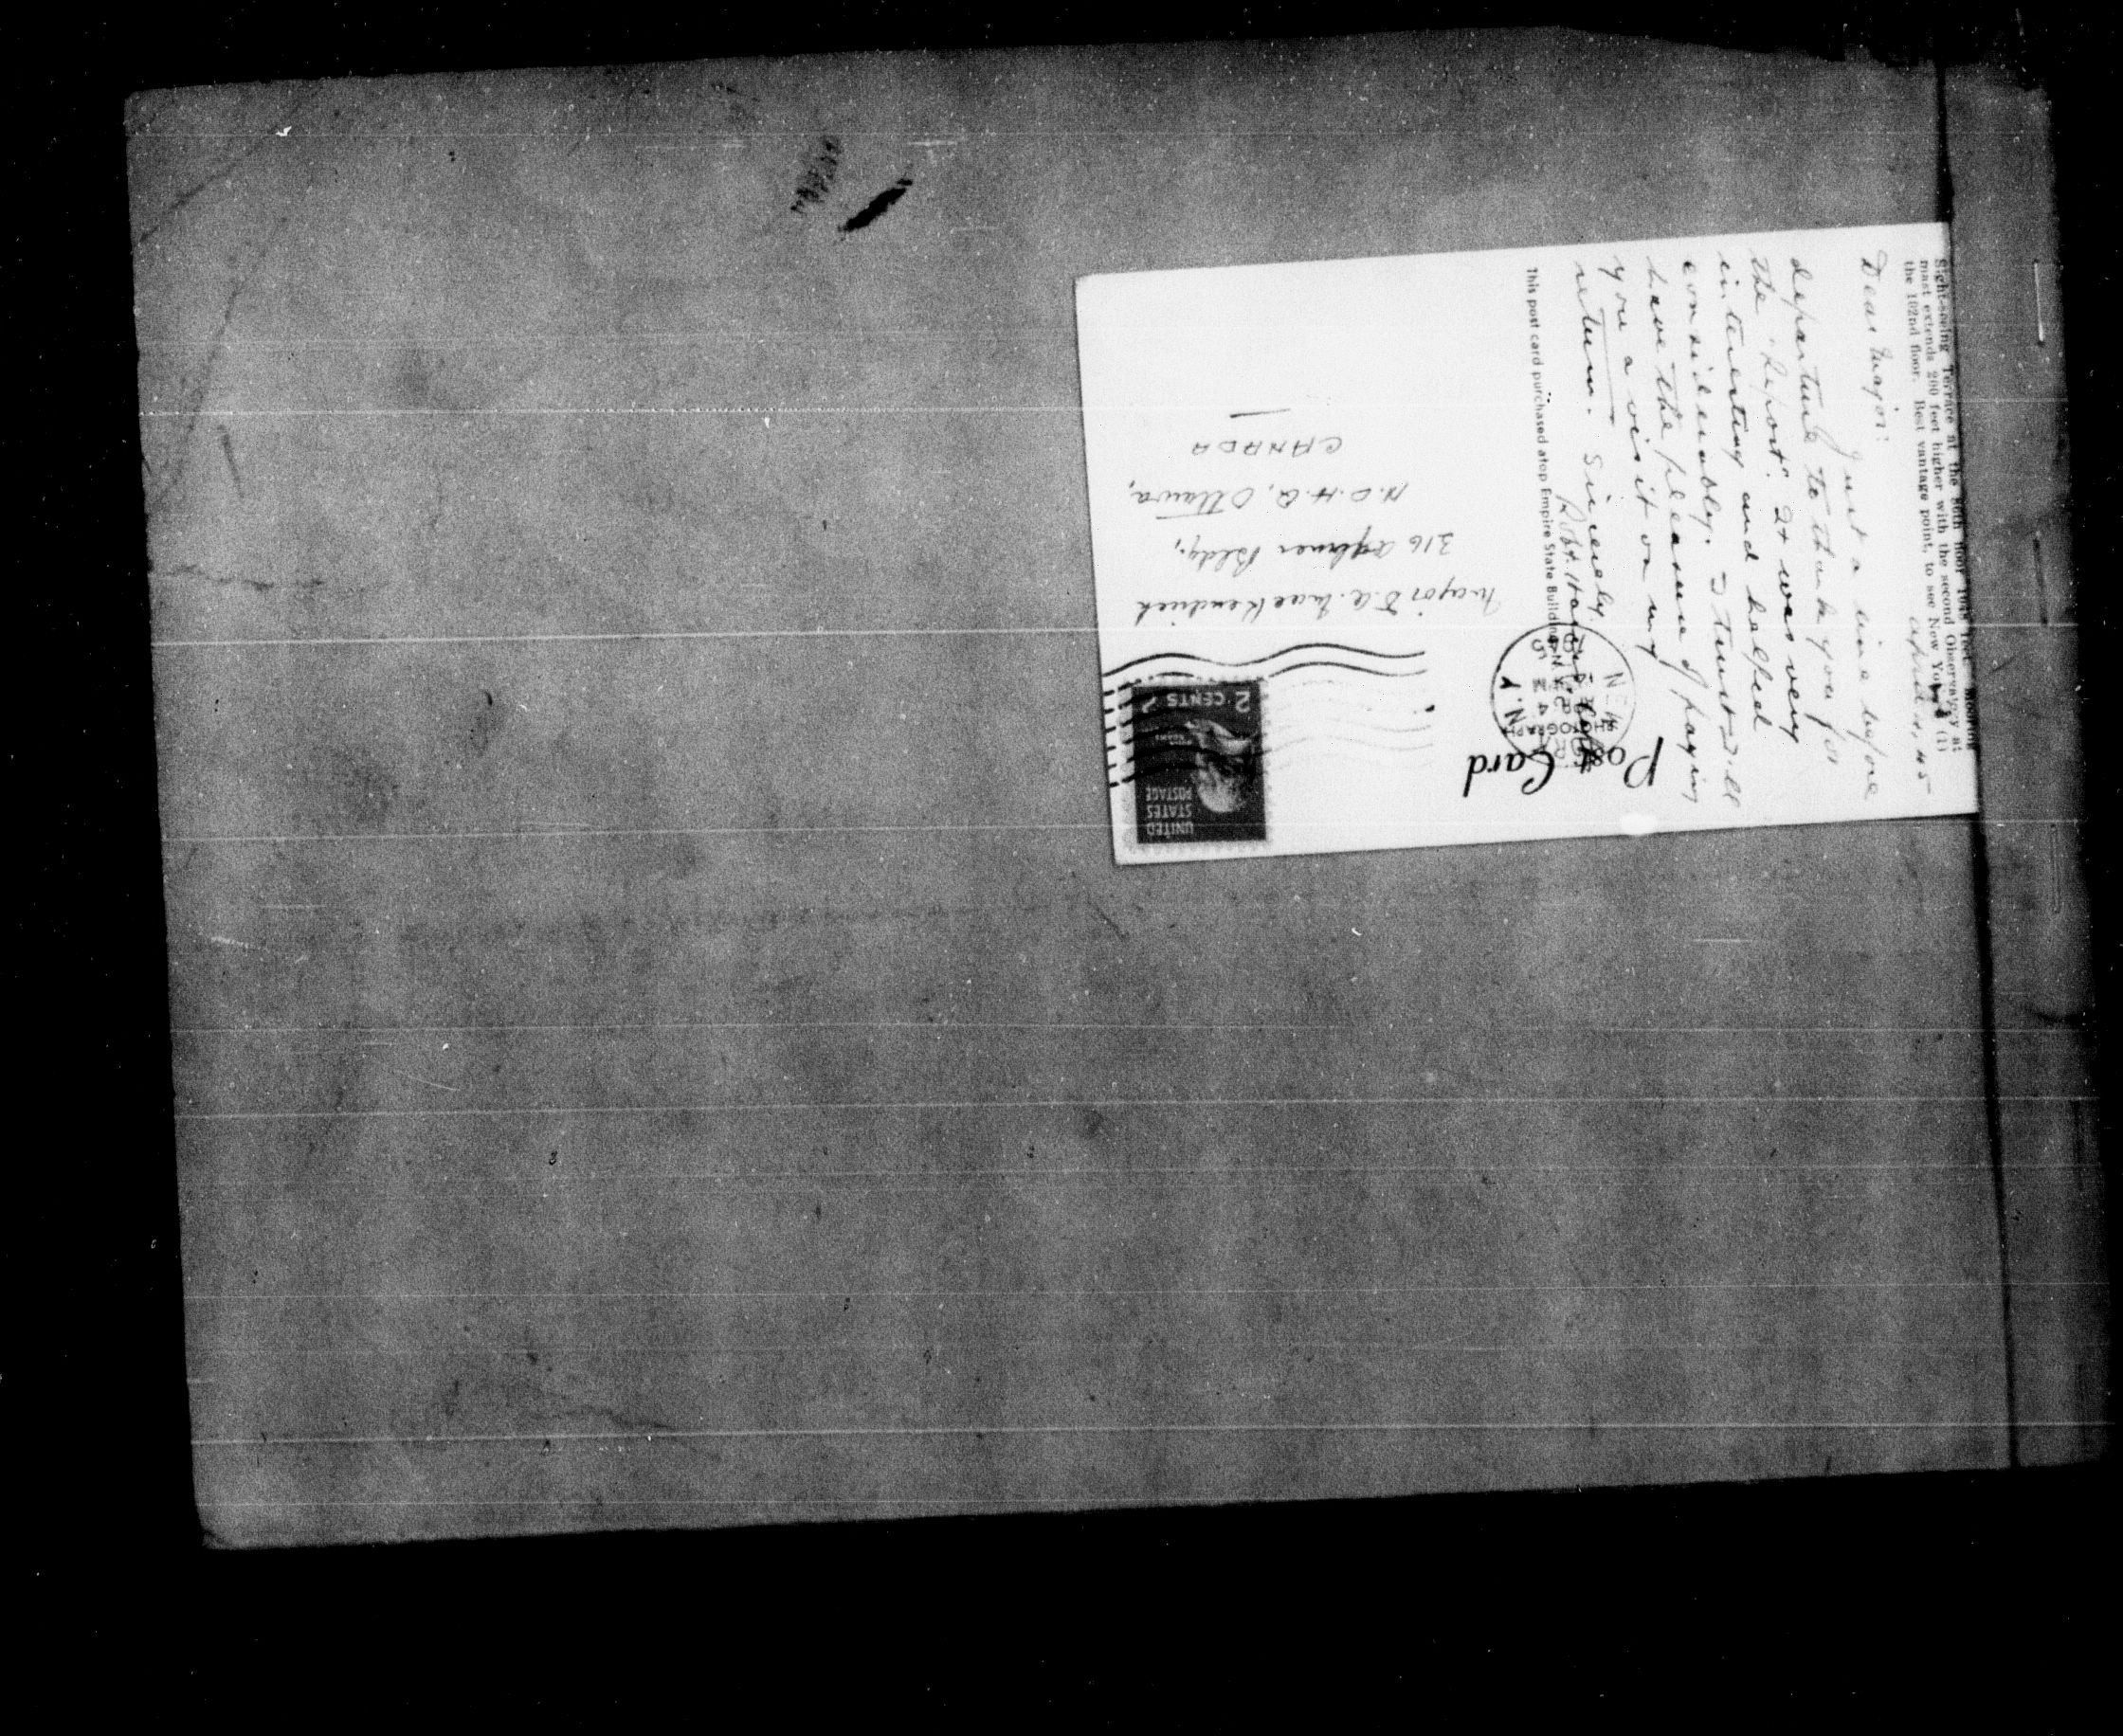 Sight-seeing Terrace at the 86th floor 1048 feet. Mooring
mast extends 200 feet higher with the second Observatory at
the 102nd floor. Best vantage point, to see New York. (1)
April 4, 45
Dear Major:
Just a line before
departure to thank you for
the "Report". It was very
interesting and helped
considerably. I trust I'll
have the pleasure of paying
you a visit on my
return. Sincerely,
Robt.
This post card purchased atop Empire State Building, N.Y.
Post Card
PHOTOGRAPH
N.Y.
APR 4
PM
1945
UNITED
STATES
POSTAGE
2 CENTS 2
Major D.A. MacKendrick
316 Bldg,
N.D.H.Q, Ottawa,
CANADA